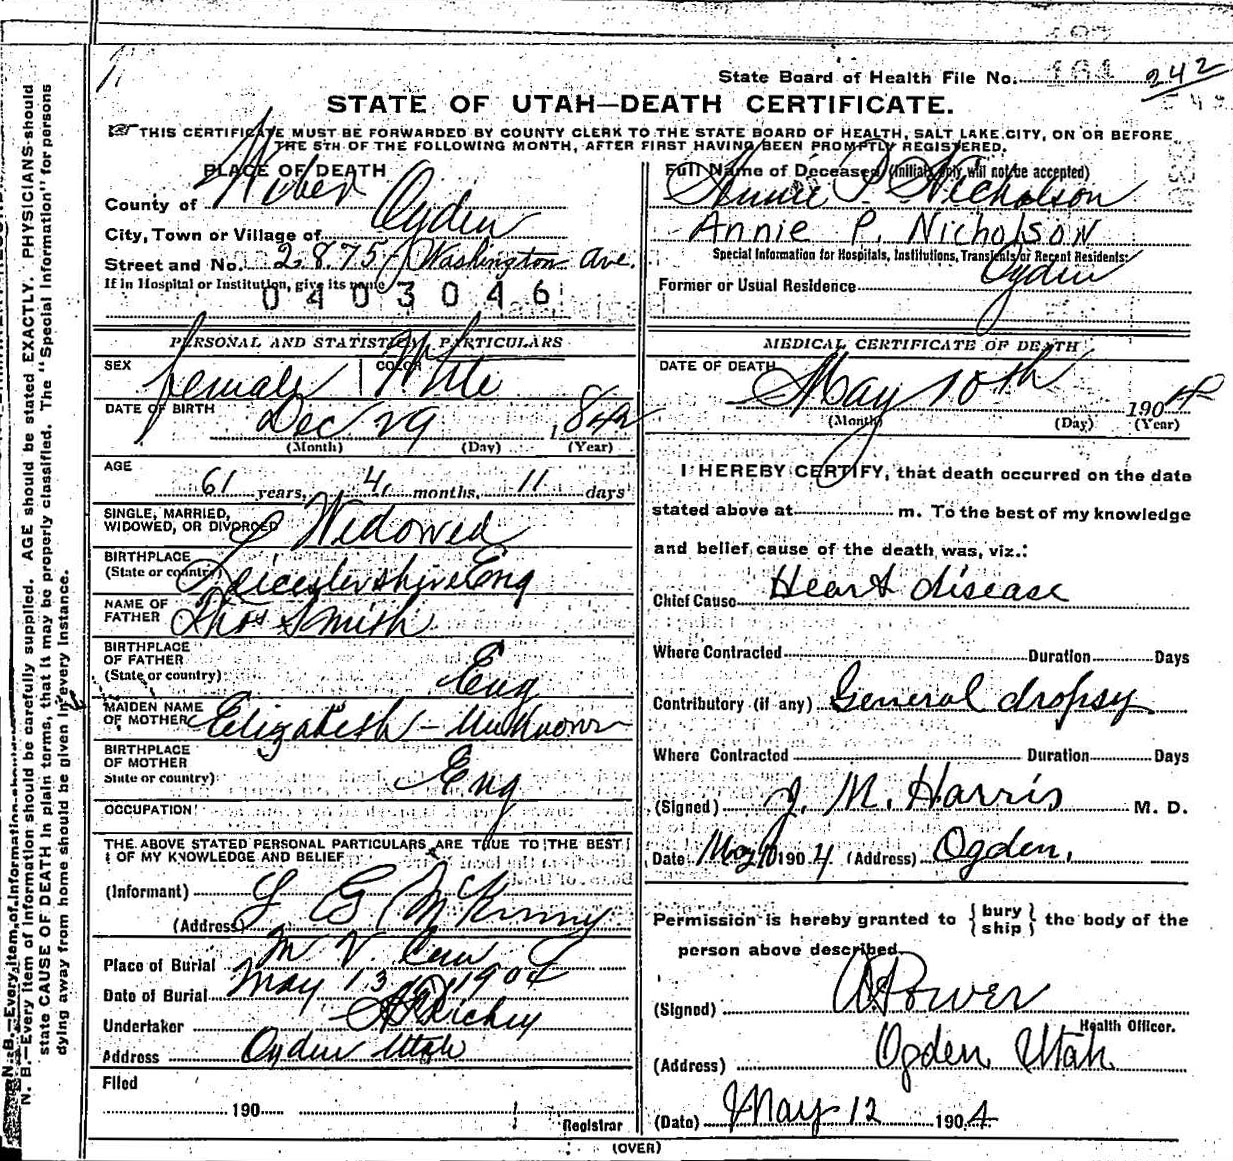 State Board of Health File No. 242
STATE OF UTAH—DEATH CERTIFICATE.
THIS CERTIFICATE MUST BE FORWARDED BY COUNTY CLERK TO THE STATE BOARD OF HEALTH, SALT LAKE CITY, ON OR BEFORE
THE 5TH OF THE FOLLOWING MONTH, AFTER FIRST HAVING BEEN PROMPTLY REGISTERED.
PLACE OF DEATH
County of Weber
City, Town or Village of Ogden
Street and No. 2875 Washington Ave.
If in Hospital or Institution, give its name
0403046
Full Name of Deceased (Initials only will not be accepted)
Annie P. Nicholson
Annie P. Nicholson
Special Information for Hospitals, Institutions, Transients or Recent Residents:
Former or Usual Residence Ogden
PERSONAL AND STATISTICAL PARTICULARS
SEX female COLOR White
DATE OF BIRTH Dec 29 1842
(Month) (Day) (Year)
AGE
61 years, 4 months, 11 days
SINGLE, MARRIED,
WIDOWED, OR DIVORCED Widowed
BIRTHPLACE
(State or country) Leicestershire Eng
NAME OF
FATHER Thos Smith
BIRTHPLACE
OF FATHER
(State or country) Eng
MAIDEN NAME
OF MOTHER Elizabeth - Unknown
BIRTHPLACE
OF MOTHER
State or country) Eng
OCCUPATION
THE ABOVE STATED PERSONAL PARTICULARS ARE TRUE TO THE BEST
OF MY KNOWLEDGE AND BELIEF
(Informant) McKinny
(Address)
Place of Burial M V Cem
Date of Burial May 13 1904
Undertaker Richey
Address Ogden Utah
Filed
190
Registrar
MEDICAL CERTIFICATE OF DEATH
DATE OF DEATH
May 10th 1904
(Month) (Day) (Year)
I HEREBY CERTIFY, that death occurred on the date
stated above at m. To the best of my knowledge
and belief cause of the death was, viz.:
Chief Cause Heart disease
Where Contracted Duration Days
Contributory (if any) General dropsy
Where Contracted Duration Days
(Signed) J. M. Harris M. D.
Date May 1904 (Address) Ogden,
Permission is hereby granted to {bury
ship} the body of the
person above described
(Signed) Power
Health Officer.
(Address) Ogden Utah
(Date) May 12 1904
(OVER)
N. B.—Every item of information should be carefully supplied. AGE should be stated EXACTLY. PHYSICIANS should
state CAUSE OF DEATH in plain terms, that it may be properly classified. The "Special Information" for persons
dying away from home should be given in every instance.
N. B.—Every item of information